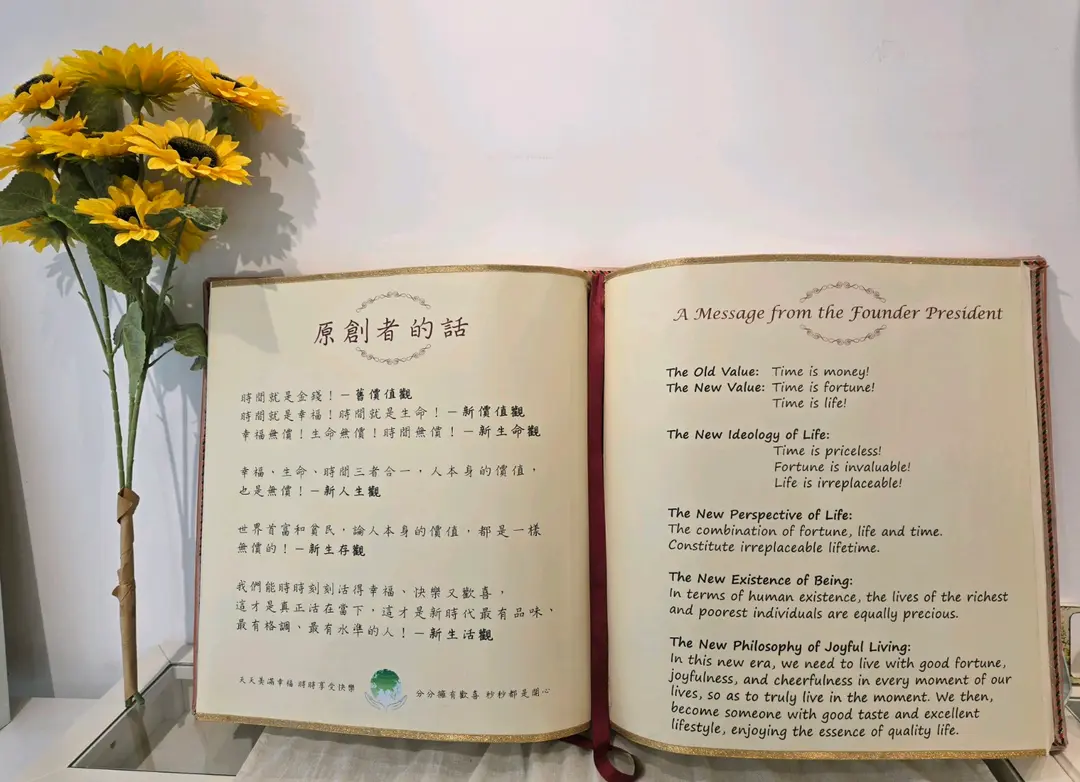 原創者的話
時間就是金錢！－舊價值觀
時間就是幸福！時間就是生命！－新價值觀
幸福無價！生命無價！時間無價！－新生命觀
幸福、生命、時間三者合一，人本身的價值，
也是無價！－新人生觀
世界首富和貧民，論人本身的價值，都是一樣
無價的！－新生存觀
我們能時時刻刻活得幸福、快樂又歡喜，
這才是真正活在當下，這才是新時代最有品味、
最有格調、最有水準的人！－新生活觀
天天美滿幸福 時時享受快樂
分分擁有歡喜 秒秒都是開心
A Message from the Founder President
The Old Value: Time is money!
The New Value: Time is fortune!
Time is life!
The New Ideology of Life:
Time is priceless!
Fortune is invaluable!
Life is irreplaceable!
The New Perspective of Life:
The combination of fortune, life and time.
Constitute irreplaceable lifetime.
The New Existence of Being:
In terms of human existence, the lives of the richest
and poorest individuals are equally precious.
The New Philosophy of Joyful Living:
In this new era, we need to live with good fortune,
joyfulness, and cheerfulness in every moment of our
lives, so as to truly live in the moment. We then,
become someone with good taste and excellent
lifestyle, enjoying the essence of quality life.